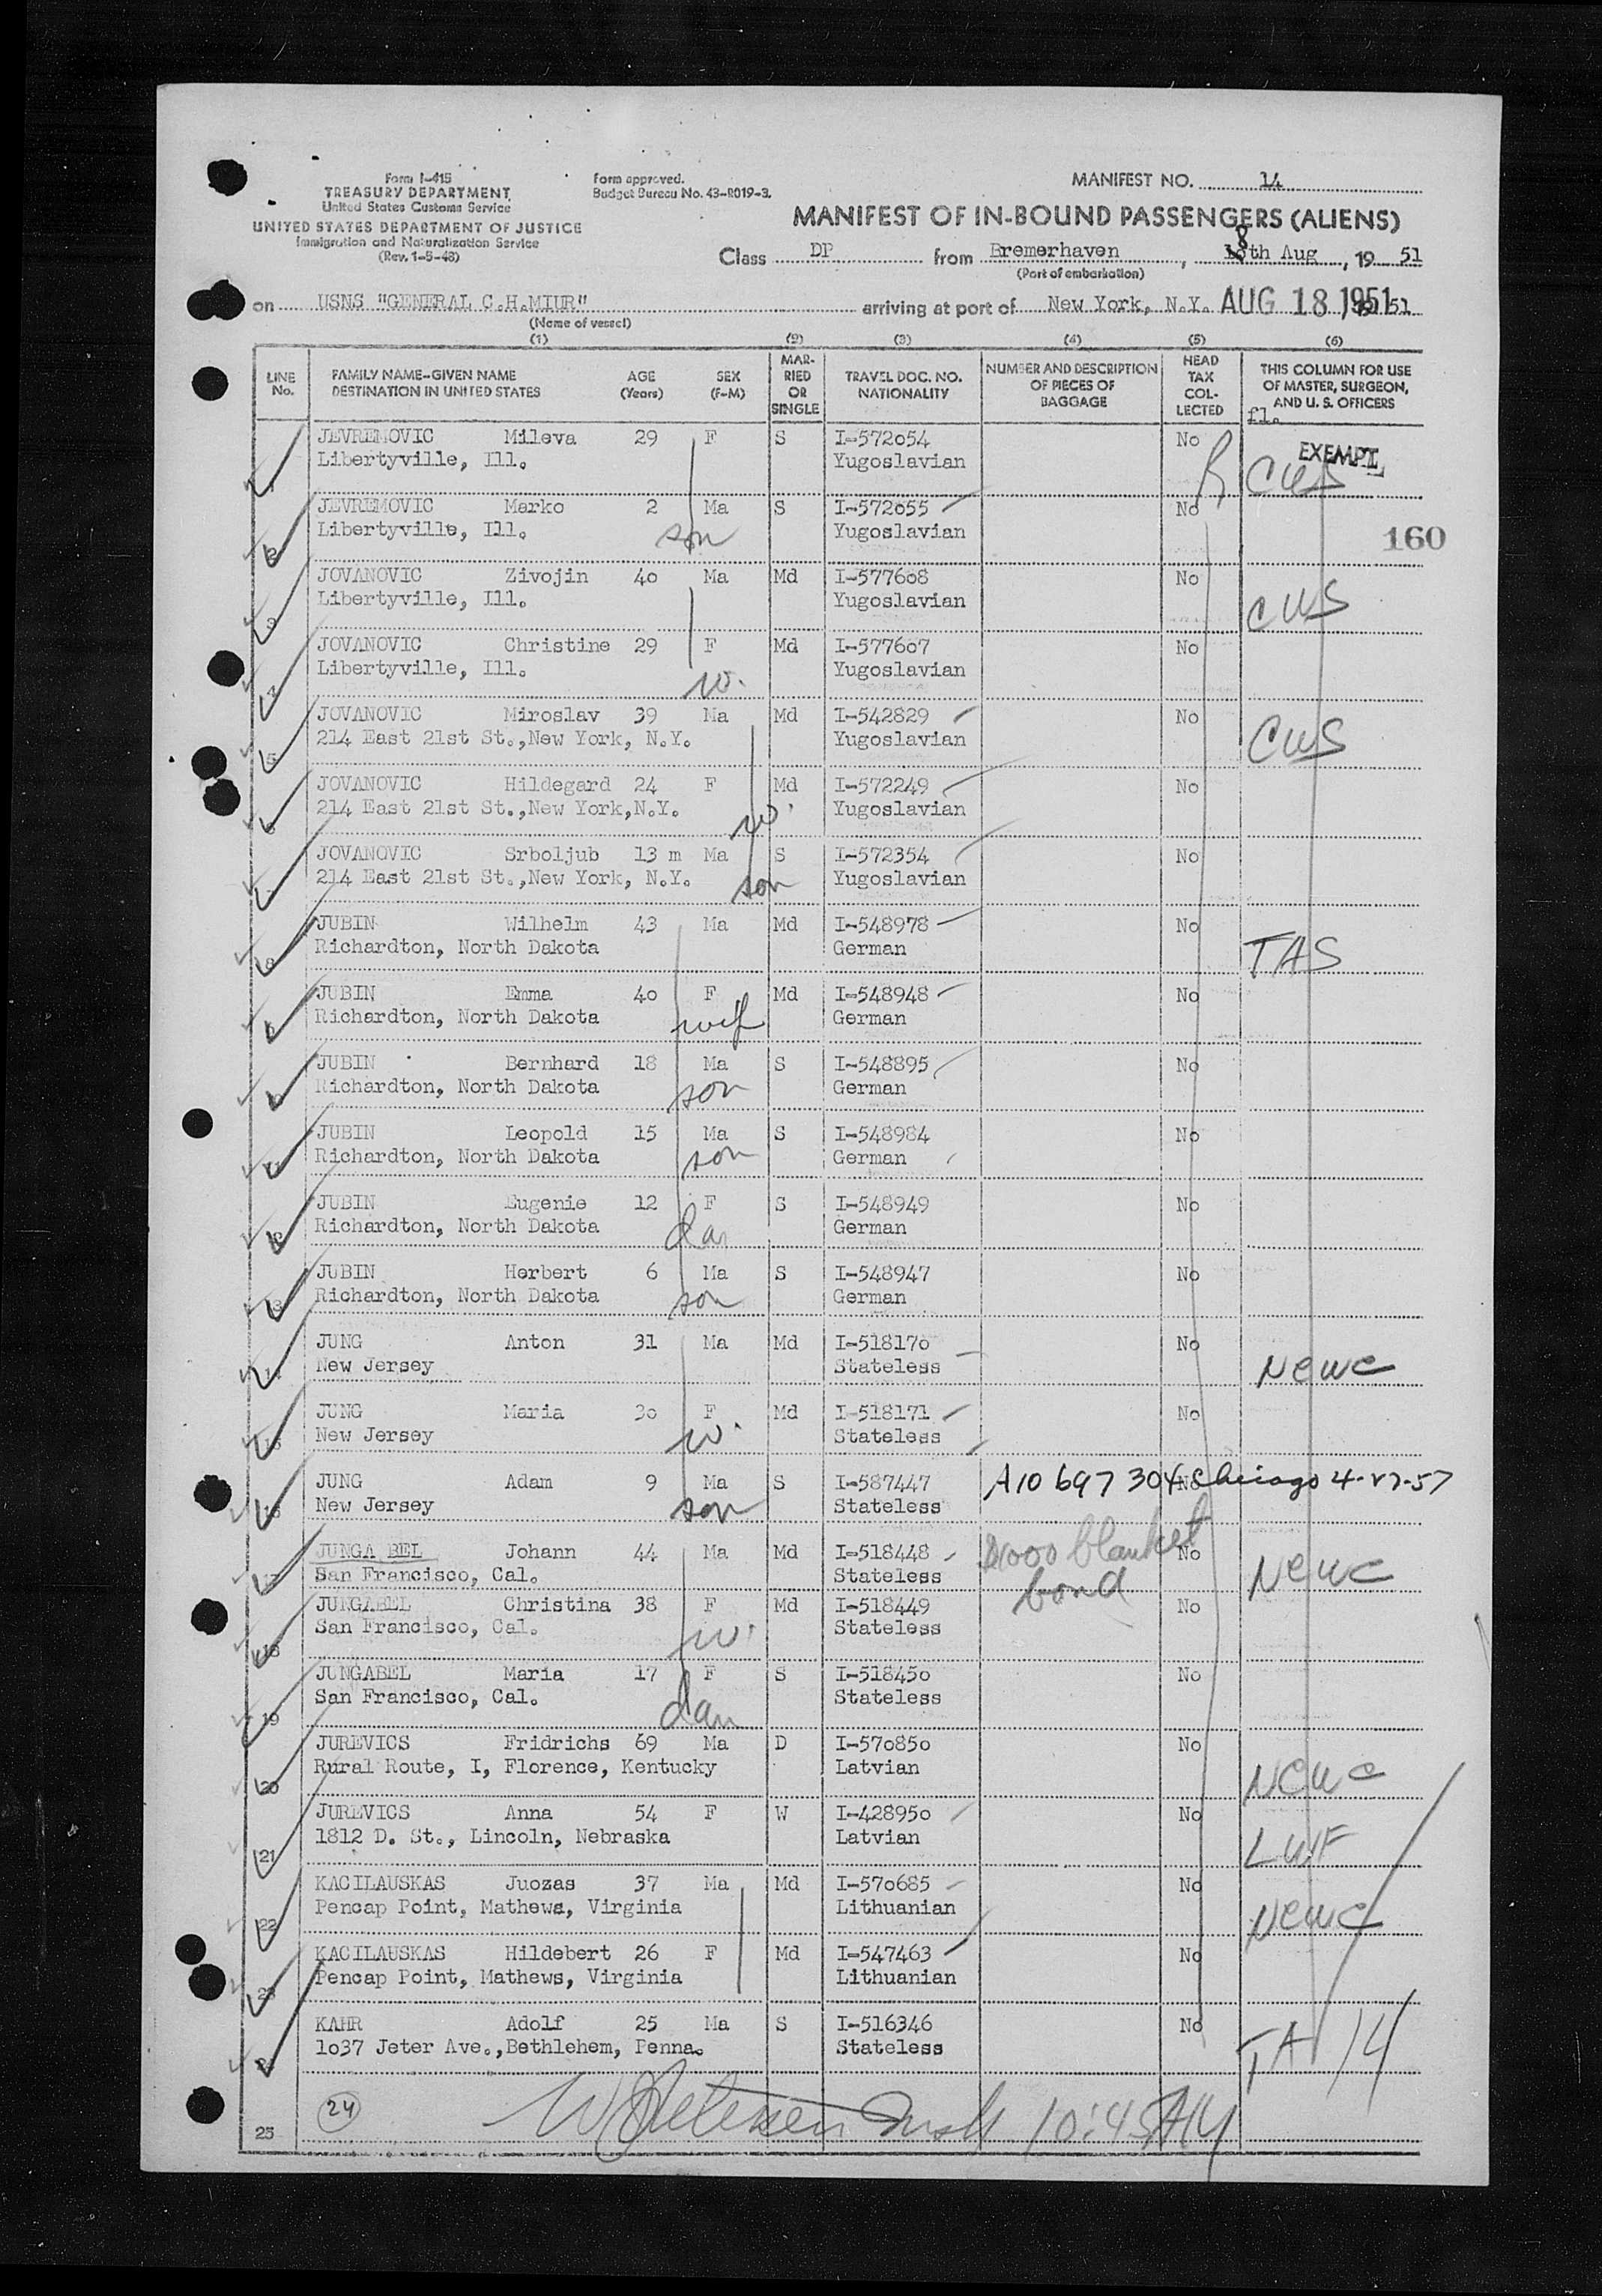 Form I-415
TREASURY DEPARTMENT
United States Customs Service
UNITED STATES DEPARTMENT OF JUSTICE
Immigration and Naturalization Service
(Rev. 1-5-48)
Form approved.
Budget Bureau No. 43-R019-3.
MANIFEST NO. 14
MANIFEST OF IN-BOUND PASSENGERS (ALIENS)
Class DP from Bremerhaven, 8th Aug, 19 51
(Port of embarkation)
on USNS "GENERAL C.H.MIUR" arriving at port of New York, N.Y. AUG 18 1951 51
(Name of vessel)
(1) (2) (3) (4) (5) (6)
LINE No. FAMILY NAME—GIVEN NAME DESTINATION IN UNITED STATES AGE (Years) SEX (F-M) MARRIED OR SINGLE TRAVEL DOC. NO. NATIONALITY NUMBER AND DESCRIPTION OF PIECES OF BAGGAGE HEAD TAX COLLECTED THIS COLUMN FOR USE OF MASTER, SURGEON, AND U. S. OFFICERS
fl.
JEVREMOVIC Mileva 29 F S I-572054 No EXEMPT
Libertyville, Ill. Yugoslavian CWS
2 JEVREMOVIC Marko 2 Ma S I-572055 No
Libertyville, Ill. son Yugoslavian 160
3 JOVANOVIC Zivojin 40 Ma Md I-577608 No
Libertyville, Ill. Yugoslavian CWS
4 JOVANOVIC Christine 29 F Md I-577607 No
Libertyville, Ill. w. Yugoslavian
5 JOVANOVIC Miroslav 39 Ma Md I-542829 No
214 East 21st St.,New York, N.Y. Yugoslavian CWS
6 JOVANOVIC Hildegard 24 F Md I-572249 No
214 East 21st St.,New York,N.Y. w. Yugoslavian
JOVANOVIC Srboljub 13 m Ma S I-572354 No
214 East 21st St.,New York, N.Y. son Yugoslavian
8 JUBIN Wilhelm 43 Ma Md I-548978 No
Richardton, North Dakota German TAS
JUBIN Emma 40 F Md I-548948 No
Richardton, North Dakota wif German
JUBIN Bernhard 18 Ma S I-548895 No
Richardton, North Dakota son German
JUBIN Leopold 15 Ma S I-548984 No
Richardton, North Dakota son German
JUBIN Eugenie 12 F S I-548949 No
Richardton, North Dakota da German
13 JUBIN Herbert 6 Ma S I-548947 No
Richardton, North Dakota son German
14 JUNG Anton 31 Ma Md I-518170 No
New Jersey Stateless NCWC
15 JUNG Maria 30 F Md I-518171 No
New Jersey w. Stateless
16 JUNG Adam 9 Ma S I-587447 A10 697 304 No Chicago 4-27-57
New Jersey son Stateless
JUNGA BEL Johann 44 Ma Md I-518448 $1000 blanket No
San Francisco, Cal. Stateless bond NCWC
18 JUNGABEL Christina 38 F Md I-518449 No
San Francisco, Cal. w. Stateless
19 JUNGABEL Maria 17 F S I-518450 No
San Francisco, Cal. dau Stateless
20 JUREVICS Fridrichs 69 Ma D I-570850 No
Rural Route, I, Florence, Kentucky Latvian NCWC
21 JUREVICS Anna 54 F W I-428950 No
1812 D. St., Lincoln, Nebraska Latvian LWF
22 KACILAUSKAS Juozas 37 Ma Md I-570685 No
Pencap Point, Mathews, Virginia Lithuanian NCWC
23 KACILAUSKAS Hildebert 26 F Md I-547463 No
Pencap Point, Mathews, Virginia Lithuanian
KAHR Adolf 25 Ma S I-516346 No
1037 Jeter Ave.,Bethlehem, Penna. Stateless TA 14
24 10:45 AM
25